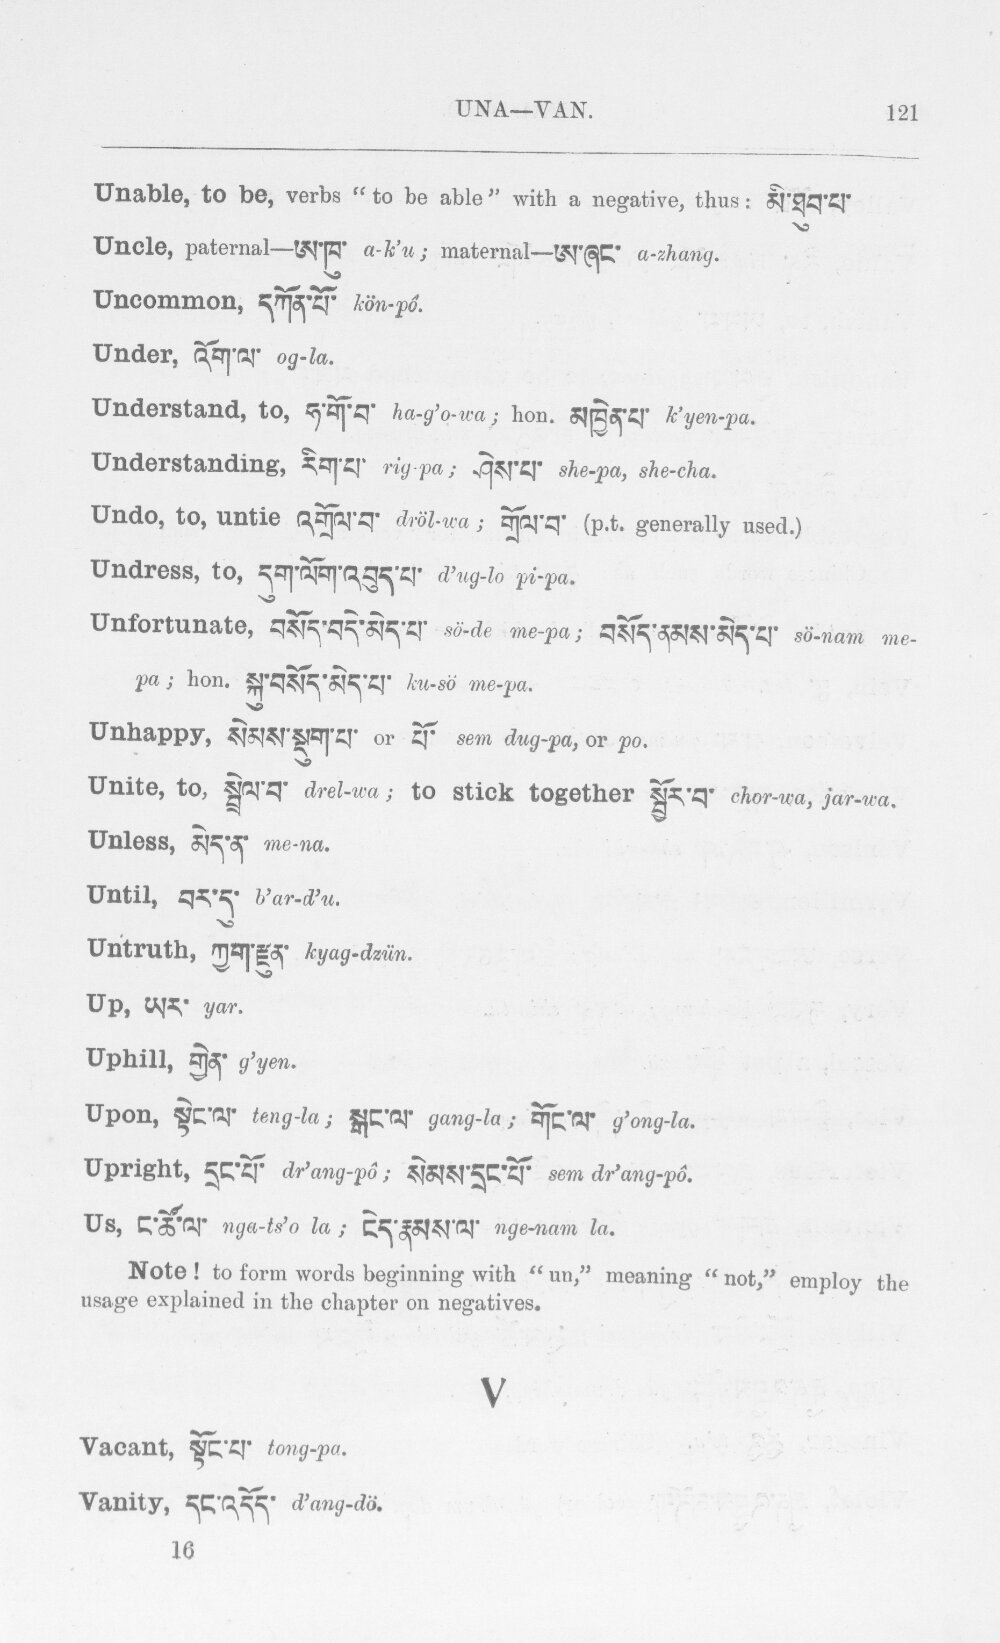 UNA—VAN. 121
Unable, to be, verbs “to be able” with a negative, thus: མི་ཐུབ་པ་
Uncle, paternal—ཨ་ཁུ་ a-k’u; maternal—ཨ་ཞང་ a-zhang.
Uncommon, དཀོན་པོ་ kön-pô.
Under, འོག་ལ་ og-la.
Understand, to, ཧ་གོ་བ་ ha-g’o-wa; hon. མཁྱེན་པ་ k’yen-pa.
Understanding, རིག་པ་ rig-pa; ཤེས་པ་ she-pa, she-cha.
Undo, to, untie འགྲོལ་བ་ dröl-wa; གྲོལ་བ་ (p.t. generally used.)
Undress, to, དུག་ལོག་འབུད་པ་ d’ug-lo pi-pa.
Unfortunate, བསོད་བདེ་མེད་པ་ sö-de me-pa; བསོད་ནམས་མེད་པ་ sö-nam me-
pa; hon. སྐུ་བསོད་མེད་པ་ ku-sö me-pa.
Unhappy, སེམས་སྡུག་པ་ or པོ་ sem dug-pa, or po.
Unite, to, སྦྲེལ་བ་ drel-wa; to stick together སྦྱོར་བ་ chor-wa, jar-wa.
Unless, མེད་ན་ me-na.
Until, བར་དུ་ b’ar-d’u.
Untruth, ཀྱག་རྫུན་ kyag-dzün.
Up, ཡར་ yar.
Uphill, གྱེན་ g’yen.
Upon, སྟེང་ལ་ teng-la; སྒང་ལ་ gang-la; གོང་ལ་ g’ong-la.
Upright, དྲང་པོ་ dr’ang-pô; སེམས་དྲང་པོ་ sem dr’ang-pô.
Us, ང་ཚོ་ལ་ nga-ts’o la; ངེད་རྣམས་ལ་ nge-nam la.
Note! to form words beginning with “un,” meaning “not,” employ the
usage explained in the chapter on negatives.
V
Vacant, སྟོང་པ་ tong-pa.
Vanity, དང་འདོད་ d’ang-dö.
16